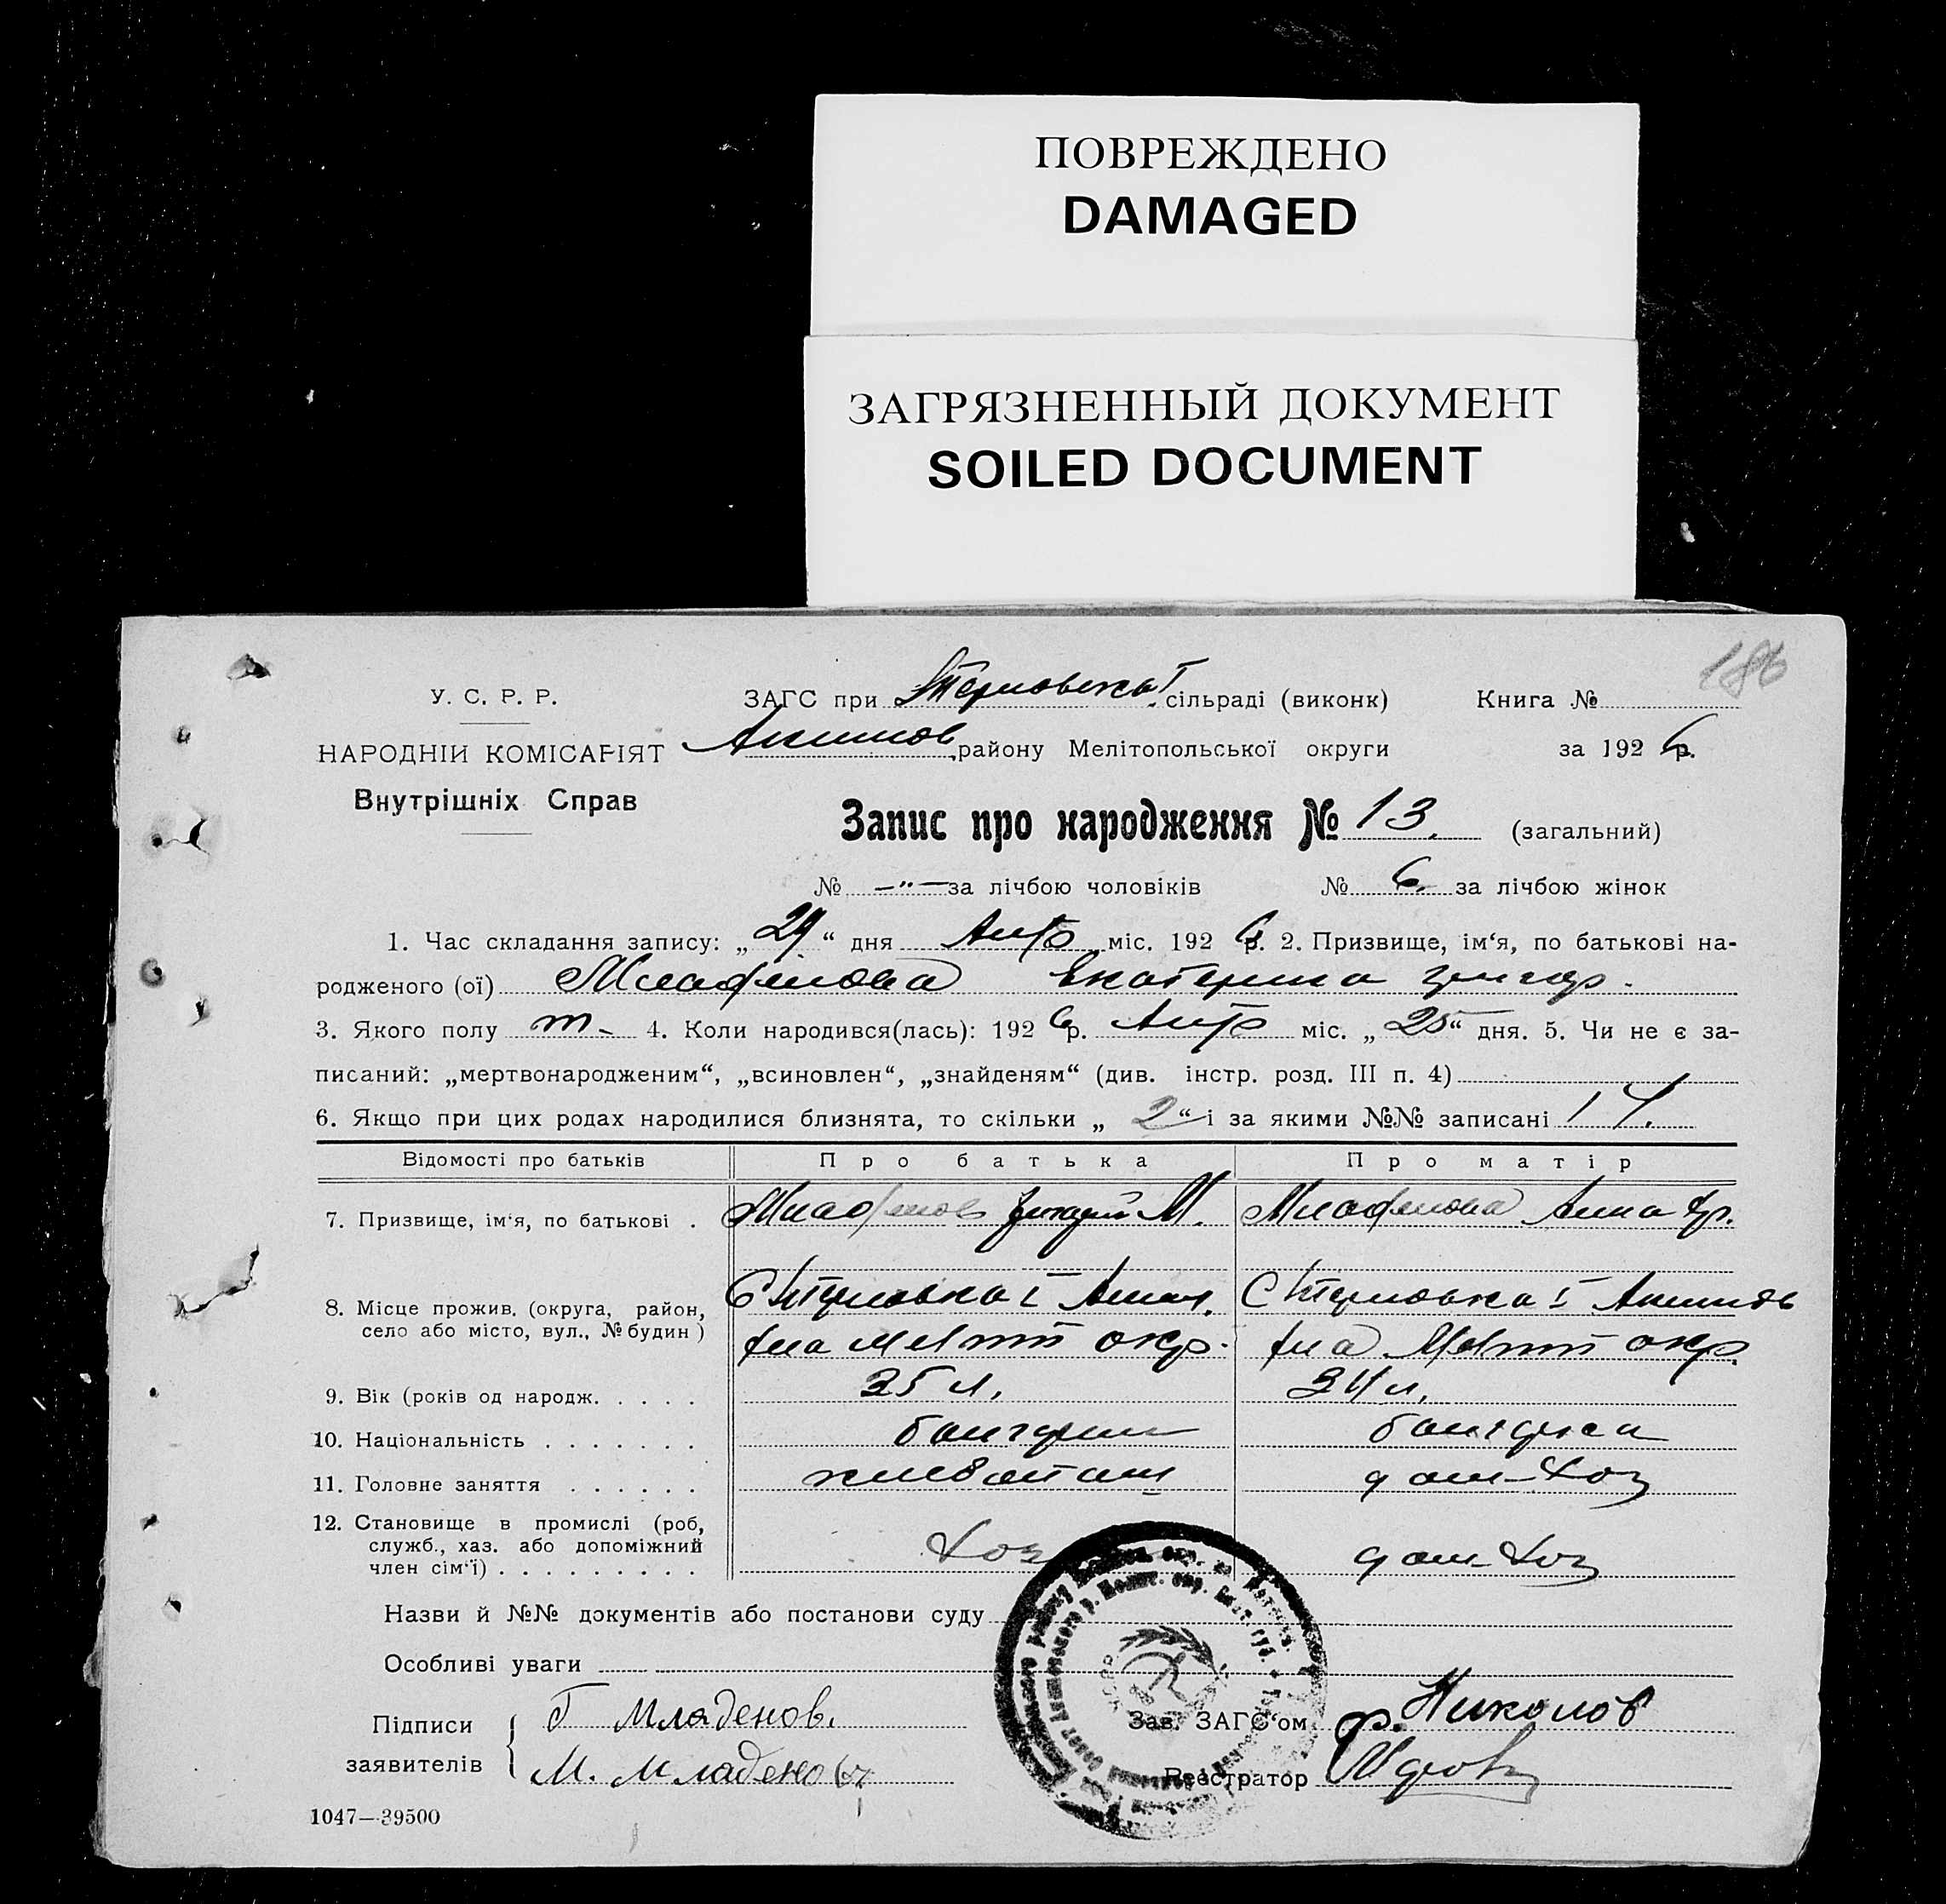 ПОВРЕЖДЕНО
DAMAGED
ЗАГРЯЗНЕННЫЙ ДОКУМЕНТ
SOILED DOCUMENT
186
У. С. Р. Р. ЗАГС при сільраді (виконк) Книга №
НАРОДНІЙ КОМІСАРІЯТ Акимов. району Мелітопольської округи за 1926 р.
Внутрішніх Справ
Запис про народження № 13. (загальний)
№ —"— за лічбою чоловіків № 6. за лічбою жінок
1. Час складання запису: „29“ дня міс. 1926 р. 2. Призвище, ім‘я, по батькові на-
родженого (ої) Младенова Екатерина Григор.
3. Якого полу 4. Коли народився(лась): 1926 р. міс. „25“ дня. 5. Чи не є за-
писаний: „мертвонародженим“, „всиновлен“, „знайденям“ (див. інстр. розд. III п. 4)
6. Якщо при цих родах народилися близнята, то скільки „2“ і за якими №№ записані 14.
Відомості про батьків Про батька Про матір
7. Призвище, ім‘я, по батькові . Младенов М. Младенова Анна
8. Місце прожив. (округа, район, село або місто, вул., № будин ) окр. окр.
9. Вік (років од народж. . . . . 35 л. 34 л.
10. Національність . . . . . . . болгарин болгарка
11. Головне заняття . . . . . . дом-хоз
12. Становище в промислі (роб, служб., хаз. або допоміжний член сім‘ї) . . . . . . . . . хоз дом-хоз
Назви й №№ документів або постанови суду
Особливі уваги
Підписи заявителів Г Младенов. Зав. ЗАГС‘ом Николов
М. Младенов Реєстратор
1047—39500